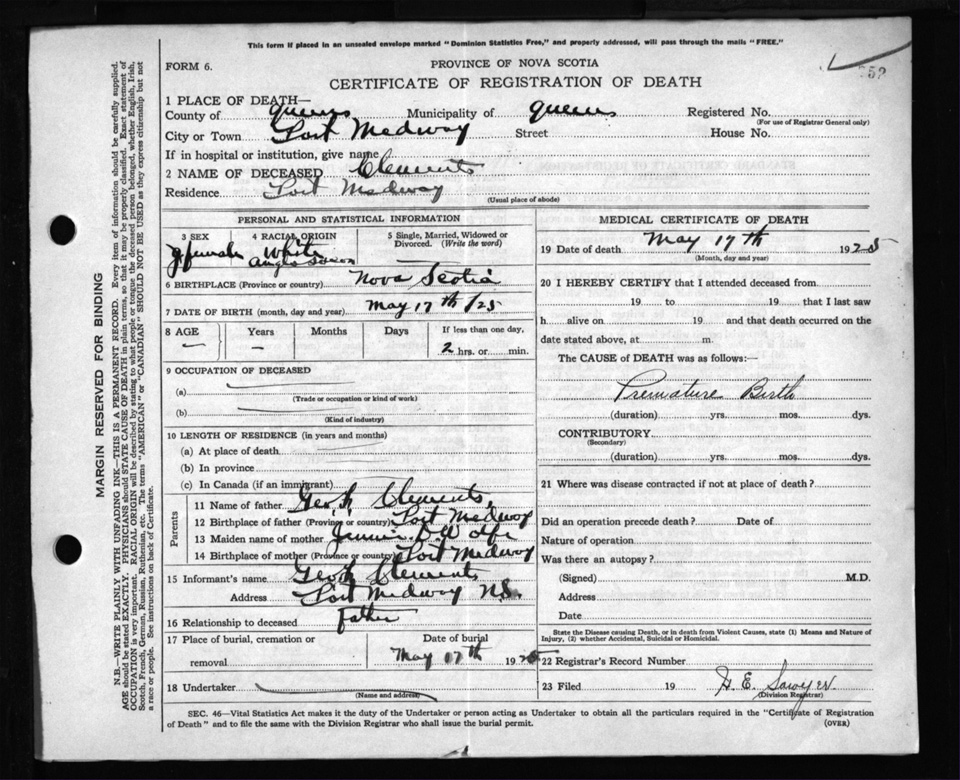 This form if placed in an unsealed envelope marked "Dominion Statistics Free," and properly addressed, will pass through the mails "FREE."
FORM 6.
PROVINCE OF NOVA SCOTIA
CERTIFICATE OF REGISTRATION OF DEATH
1 PLACE OF DEATH—
County of Queens Municipality of Queens Registered No.
(For use of Registrar General only)
City or Town Port Medway Street House No.
If in hospital or institution, give name
2 NAME OF DECEASED Clements
Residence Port Medway
(Usual place of abode)
PERSONAL AND STATISTICAL INFORMATION
3 SEX 4 RACIAL ORIGIN 5 Single, Married, Widowed or Divorced. (Write the word)
female White
Anglo Saxon
6 BIRTHPLACE (Province or country) Nova Scotia
7 DATE OF BIRTH (month, day and year) May 17th /25
8 AGE Years Months Days If less than one day,
— — 2 hrs. or min.
9 OCCUPATION OF DECEASED
(a)
(Trade or occupation or kind of work)
(b)
(Kind of industry)
10 LENGTH OF RESIDENCE (in years and months)
(a) At place of death
(b) In province
(c) In Canada (if an immigrant)
Parents
11 Name of father Geo. Clements
12 Birthplace of father (Province or country) Port Medway
13 Maiden name of mother
14 Birthplace of mother (Province or country) Port Medway
15 Informant's name Geo. Clements
Address Port Medway N.S.
16 Relationship to deceased Father
17 Place of burial, cremation or removal Date of burial
May 17th 1925
18 Undertaker
(Name and address)
MEDICAL CERTIFICATE OF DEATH
19 Date of death May 17th 1925
(Month, day and year)
20 I HEREBY CERTIFY that I attended deceased from
19 to 19 that I last saw
h alive on 19 and that death occurred on the
date stated above, at m.
The CAUSE of DEATH was as follows:—
Premature Birth
(duration) yrs. mos. dys.
CONTRIBUTORY
(Secondary)
(duration) yrs. mos. dys.
21 Where was disease contracted if not at place of death?
Did an operation precede death? Date of
Nature of operation
Was there an autopsy?
(Signed) M.D.
Address
Date
State the Disease causing Death, or in death from Violent Causes, state (1) Means and Nature of
Injury, (2) whether Accidental, Suicidal or Homicidal.
22 Registrar's Record Number
23 Filed 19 H. E. Sawyer
(Division Registrar)
SEC. 46—Vital Statistics Act makes it the duty of the Undertaker or person acting as Undertaker to obtain all the particulars required in the "Certificate of Registration
of Death" and to file the same with the Division Registrar who shall issue the burial permit.
(OVER)
MARGIN RESERVED FOR BINDING
N.B.—WRITE PLAINLY WITH UNFADING INK—THIS IS A PERMANENT RECORD. Every item of information should be carefully supplied.
AGE should be stated EXACTLY. PHYSICIANS should STATE CAUSE OF DEATH in plain terms, so that it may be properly classified. Exact statement of
OCCUPATION is very important. RACIAL ORIGIN will be described by stating to what people or tongue the deceased person belonged, whether English, Irish,
Scotch, French, German, Russian, Ruthenian, etc. The terms "AMERICAN" or "CANADIAN" SHOULD NOT BE USED as they express citizenship but not
a race or people. See instructions on back of Certificate.